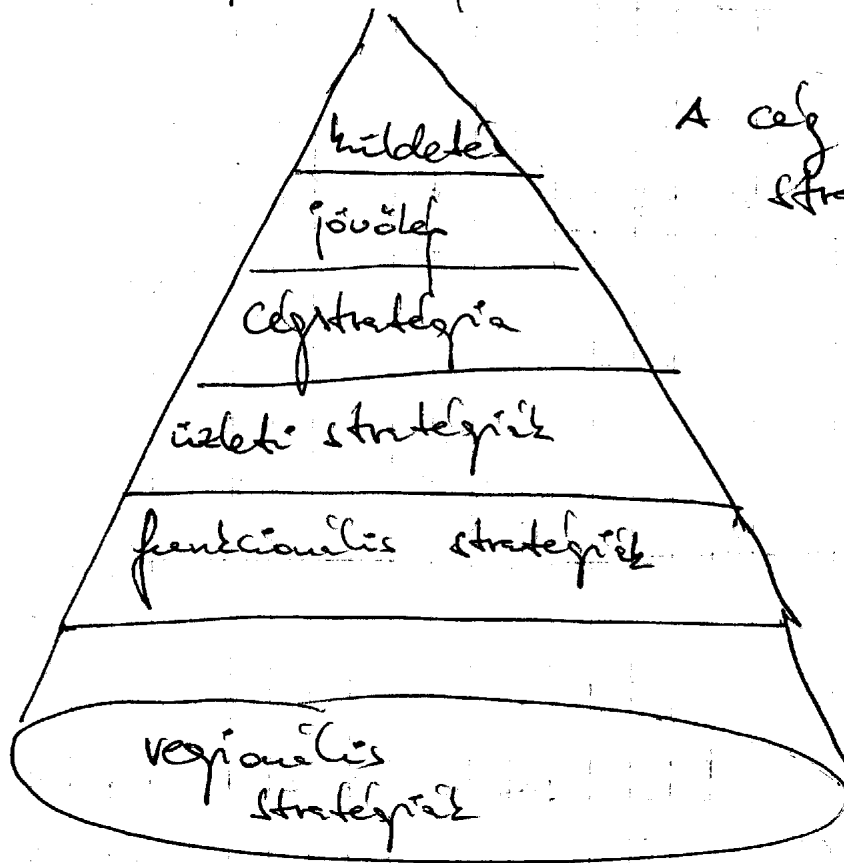 küldetés
A cég
jövőkép
stra
Cégstratégia
üzleti stratégiák
funkcionális stratégiák
regionális
stratégiák